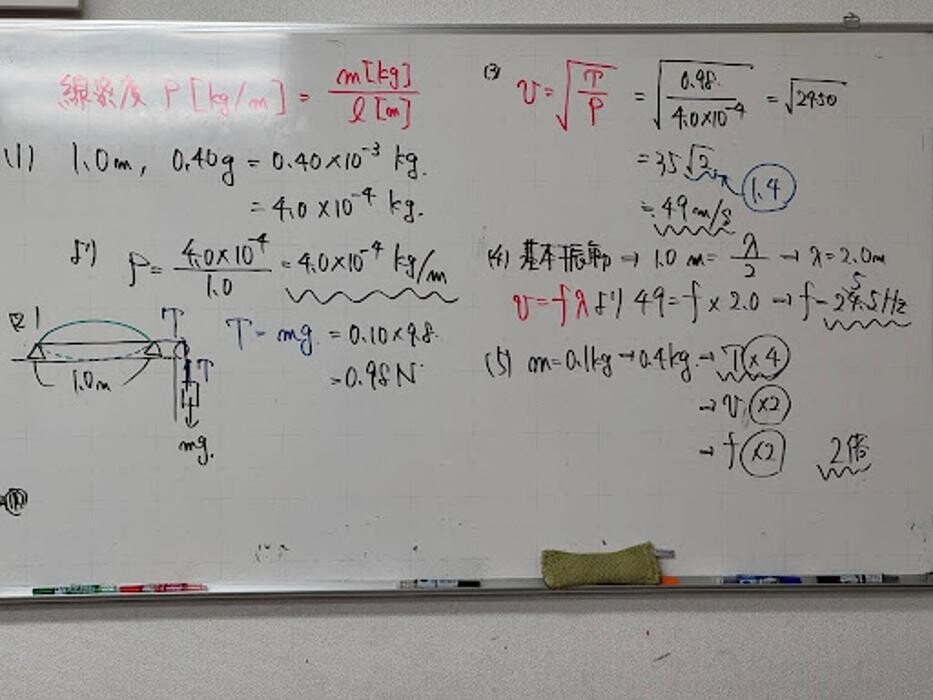 線密度 ρ [kg/m] = m[kg] / l[m]
(1) 1.0m, 0.40g = 0.40×10⁻³ kg.
= 4.0×10⁻⁴ kg.
より ρ = 4.0×10⁻⁴ / 1.0 = 4.0×10⁻⁴ kg/m
図1
T
T
1.0m
mg.
T = mg = 0.10×9.8.
= 0.98N
(3) v = √(T/ρ) = √(0.98 / 4.0×10⁻⁴) = √2450
= 35√2 1.4
≒ 49m/s
(4) 基本振動 → 1.0 m = λ/2 → λ = 2.0m
v = fλ より 49 = f × 2.0 → f = 24.5Hz
5
(5) m = 0.1kg → 0.4kg → T ×4
→ v ×2
→ f ×2 2倍